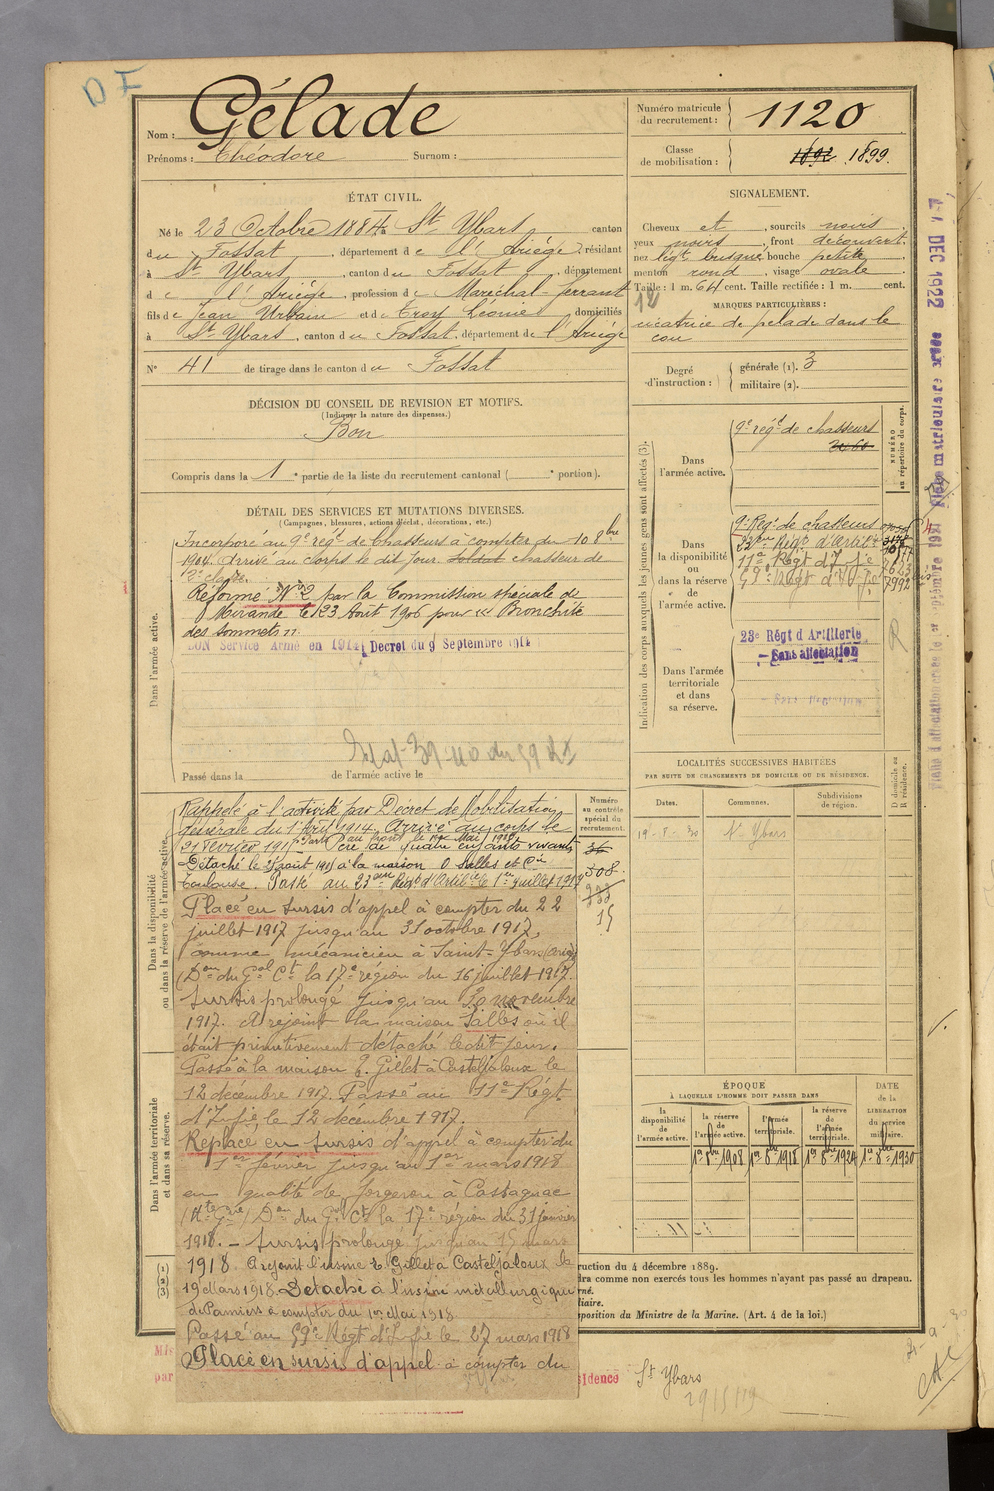 D I
Nom : Gélade
Prénoms : Théodore Surnom :
Numéro matricule
du recrutement : 1120
Classe
de mobilisation : 1892 1899.
ÉTAT CIVIL.
Né le 23 Octobre 1884 à St Ybars canton
du Fossat, département de l'Ariège, résidant
à St Ybars, canton du Fossat, département
de l'Ariège, profession de Maréchal-ferrant
fils de Jean Urbain et de Troy Léonie domiciliés
à St Ybars, canton du Fossat, département de l'Ariège
N° 41 de tirage dans le canton du Fossat
SIGNALEMENT.
Cheveux et, sourcils noirs
yeux noirs, front découvert.
nez légt busqué bouche petite
menton rond, visage ovale
Taille : 1 m. 64 cent. Taille rectifiée : 1 m. cent.
MARQUES PARTICULIÈRES :
cicatrice de pelade dans le
cou
Degré
d'instruction :
générale (1). 3
militaire (2).
DÉCISION DU CONSEIL DE REVISION ET MOTIFS.
(Indiquer la nature des dispenses.)
Bon
Compris dans la 1e partie de la liste du recrutement cantonal ( e portion).
DÉTAIL DES SERVICES ET MUTATIONS DIVERSES.
(Campagnes, blessures, actions d'éclat, décorations, etc.)
Dans l'armée active.
Incorporé au 9e régt de Chasseurs à compter du 10 8bre
1904. Arrivé au corps le dit jour. soldat chasseur de
2e classe.
Réformé N°2 par la Commission spéciale de
Mirande le 23 Août 1906 pour « Bronchite
des sommets ».
BON Service Armé en 1914 Décret du 9 Septembre 1914
Passé dans la de l'armée active le
Indication des corps auxquels les jeunes gens sont affectés (3).
Dans
l'armée active.
9e régt de chasseurs
NUMÉRO
au répertoire du corps.
Dans
la disponibilité
ou
dans la réserve
de
l'armée active.
9e Régt de chasseurs
23eme Régt d'Artillie
11e Régt d'Ifie
59e Régt d'Ifie
Dans l'armée
territoriale
et dans
sa réserve.
23e Régt d'Artillerie
Sans affectation
R
LOCALITÉS SUCCESSIVES HABITÉES
PAR SUITE DE CHANGEMENTS DE DOMICILE OU DE RÉSIDENCE.
D domicile ou
R résidence.
Dates. Communes. Subdivisions
de région.
19-8-30 St Ybars
Dans la disponibilité
ou dans la réserve de l'armée active.
Numéro
au contrôle
spécial du
recrutement.
36
508
15
Rappelé à l'activité par Décret de Mobilisation
générale du 1er Août 1914, Arrivé au corps le
21 février 1915 Père de quatre enfants vivants
Détaché le août 1915 à la maison O Salles et Cie
Toulouse. Passé au 23eme Régt d'Artillie le 1er juillet 1917
Placé en sursis d'appel à compter du 22
juillet 1917 jusqu'au 31 octobre 1917,
comme mécanicien à Saint-Ybars (Ariège)
(Don du Gal Ct la 17e région du 16 juillet 1917.
Sursis prolongé jusqu'au 30 novembre
1917. A rejoint la maison Salles où il
était primitivement détaché ledit jour.
Passé à la maison E. Gillet à Casteljaloux le
12 décembre 1917. Passé au 11e Régt
d'Ifie le 12 décembre 1917.
Replacé en sursis d'appel à compter du
1er février jusqu'au 1er mars 1918
en qualité de forgeron à Castagnac
(Hte Gne) Don du Gal Ct la 17e région du 31 janvier
1918. - Sursis prolongé jusqu'au 15 mars
1918. A rejoint l'usine E. Gillet à Casteljaloux le
19 mars 1918. Détaché à l'usine métallurgique
de Pamiers à compter du 19 Mai 1918
Passé au 59e Régt d'Ifie le 27 mars 1918
Placé en sursis d'appel à compter du
Dans l'armée territoriale
et dans sa réserve.
ÉPOQUE
À LAQUELLE L'HOMME DOIT PASSER DANS
DATE
de la
LIBÉRATION
du service
militaire.
la
disponibilité
de
l'armée active.
la réserve
de
l'armée active.
l'armée
territoriale.
la réserve
de
l'armée
territoriale.
1er 8bre 1908 1er 8bre 1918 1er 8bre 1924 1er 8bre 1930
(1)
(2)
(3)
ruction du 4 décembre 1889.
dra comme non exercés tous les hommes n'ayant pas passé au drapeau.
rné.
tiaire.
sposition du Ministre de la Marine. (Art. 4 de la loi.)
Mis
par
sidence St Ybars
29/5/19